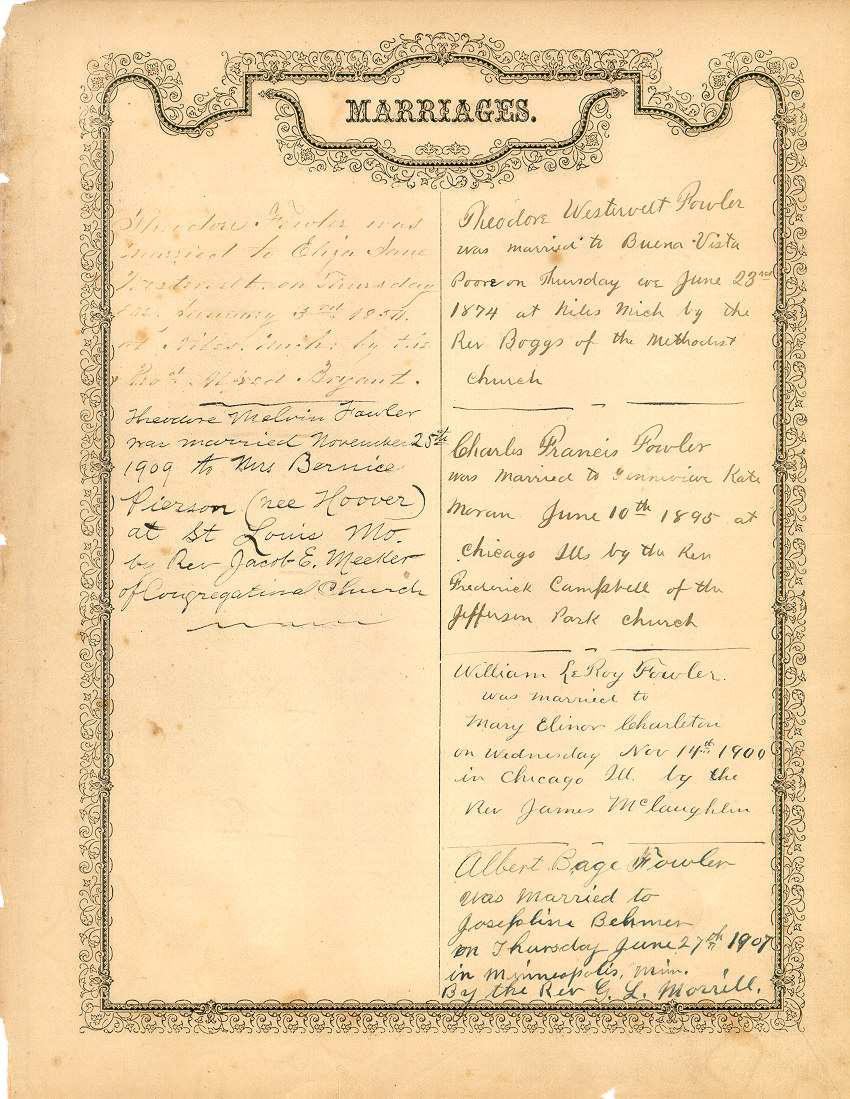 MARRIAGES.
Theodore Fowler was
married to Eliza Jane
Westervelt on Thursday
eve. January 3rd 1854.
at Niles. Mich. by the
Alfred Bryant.
Theodore Melvin Fowler
was married November 25th
1909 to Mrs Bernice
Pierson (nee Hoover)
at St Louis Mo.
by Rev Jacob E. Meeker
of Congregational Church
Theodore Westervelt Fowler
was married to Buena Vista
Poore on Thursday eve June 23rd
1874 at Niles Mich by the
Rev Boggs of the Methodist
Church
Charles Francis Fowler
was Married to Kate
Moran June 10th 1895 at
Chicago Ills by the Rev
Frederick Campbell of the
Jefferson Park church
William LeRoy Fowler.
was married to
Mary Elinor Charleton
on Wednesday Nov 14th 1900
in Chicago Ill. by the
Rev James McLaughlin
Albert Bage Fowler
was Married to
Josephine Behmer
on Thursday June 27th 1907
in Minneapolis, Minn.
By the Rev G. L. Morrill.